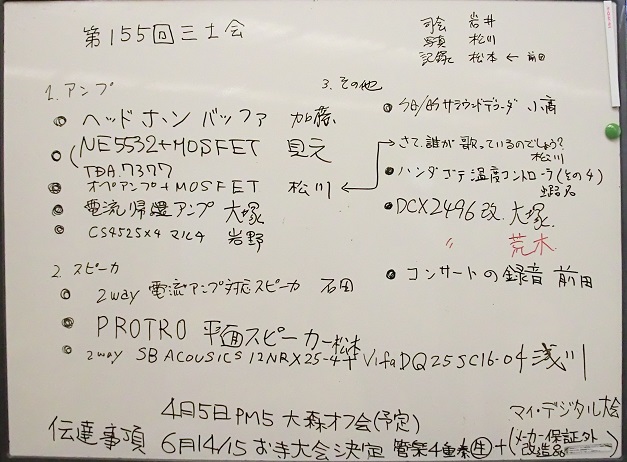 第155回三土会
司会 岩井
写真 松川
記録 松本 ← 前田
1. アンプ
ヘッドホンバッファ 加藤
NE5532+MOSFET 見元
TDA7377
オペアンプ+MOSFET 松川
電流帰還アンプ 大塚
CS4525×4 マルチ 岩野
2. スピーカ
2way 電流アンプ対応スピーカ 石田
PROTRO 平面スピーカー 松本
2way SB ACOUSICS 12NRX25-4 + Vifa DQ25SC16-04 浅川
3. その他
サラウンドデコーダ 小高
さて、誰が歌っているのでしょう?
松川
ハンダゴテ温度コントローラ(その4)
蝦名
DCX2496改 大塚
〃 荒木
コンサートの録音 前田
伝達事項
4月5日PM5 大森オフ会(予定)
6月14/15 お寺大会決定 管楽4重奏 生 +
マイ・デジタル大会
(メーカー保証外
改造品